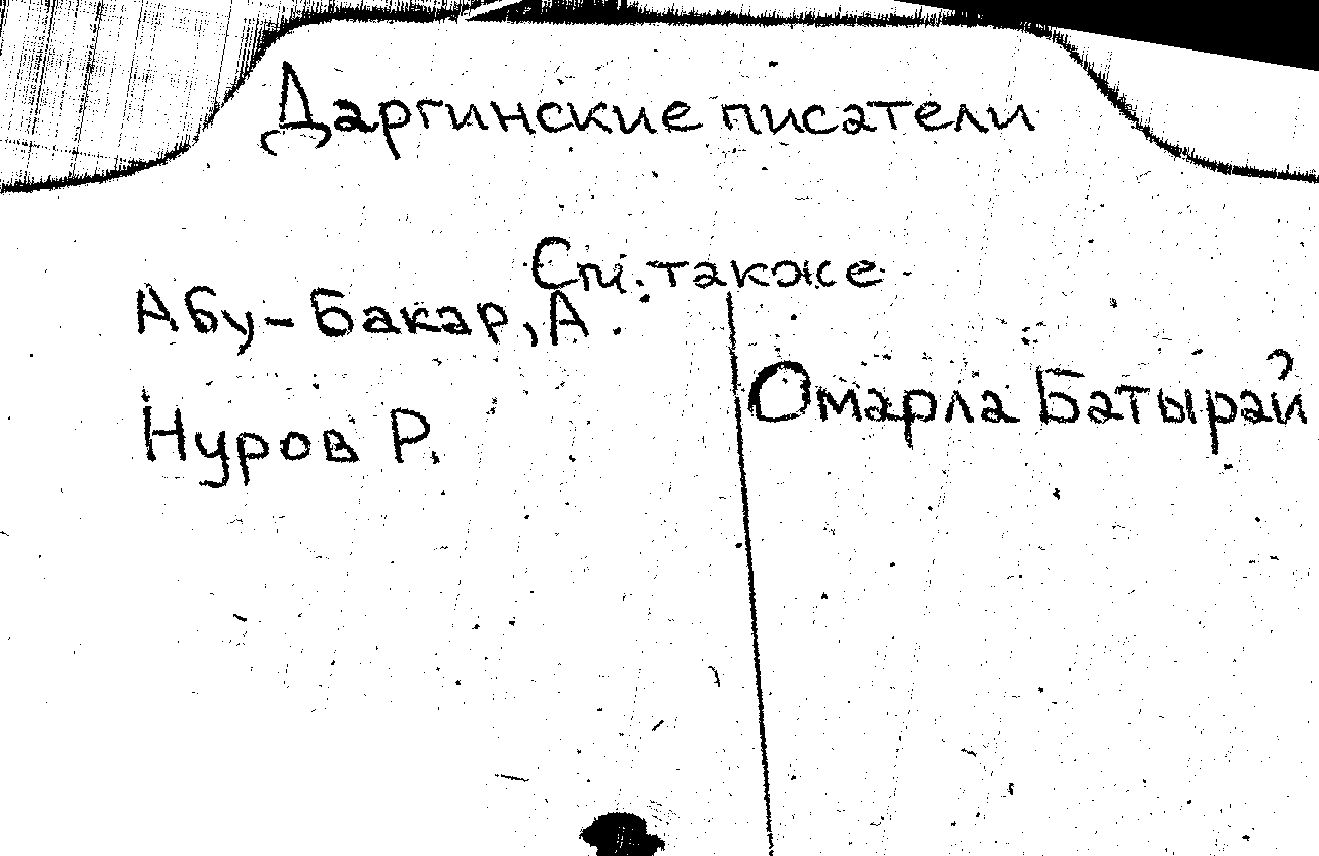 Даргинские писатели
См. также
Абу-Бакар, А.
Нуров Р.
Омарла Батырай